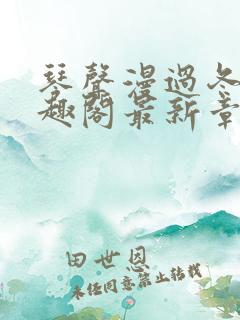 琴聲漫過冬
趣閣最新章
田世恩
未经同意禁止转载